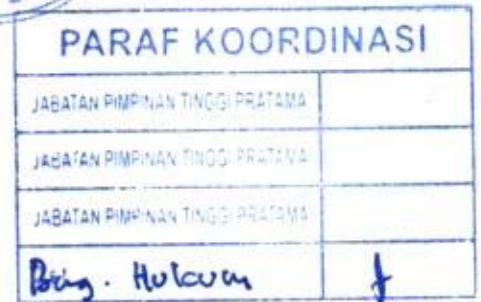 PARAF KOORDINASI
JABATAN PIMPINAN TINGGI PRATAMA
JABATAN PIMPINAN TINGGI PRATAMA
JABATAN PIMPINAN TINGGI PRATAMA
Hukum